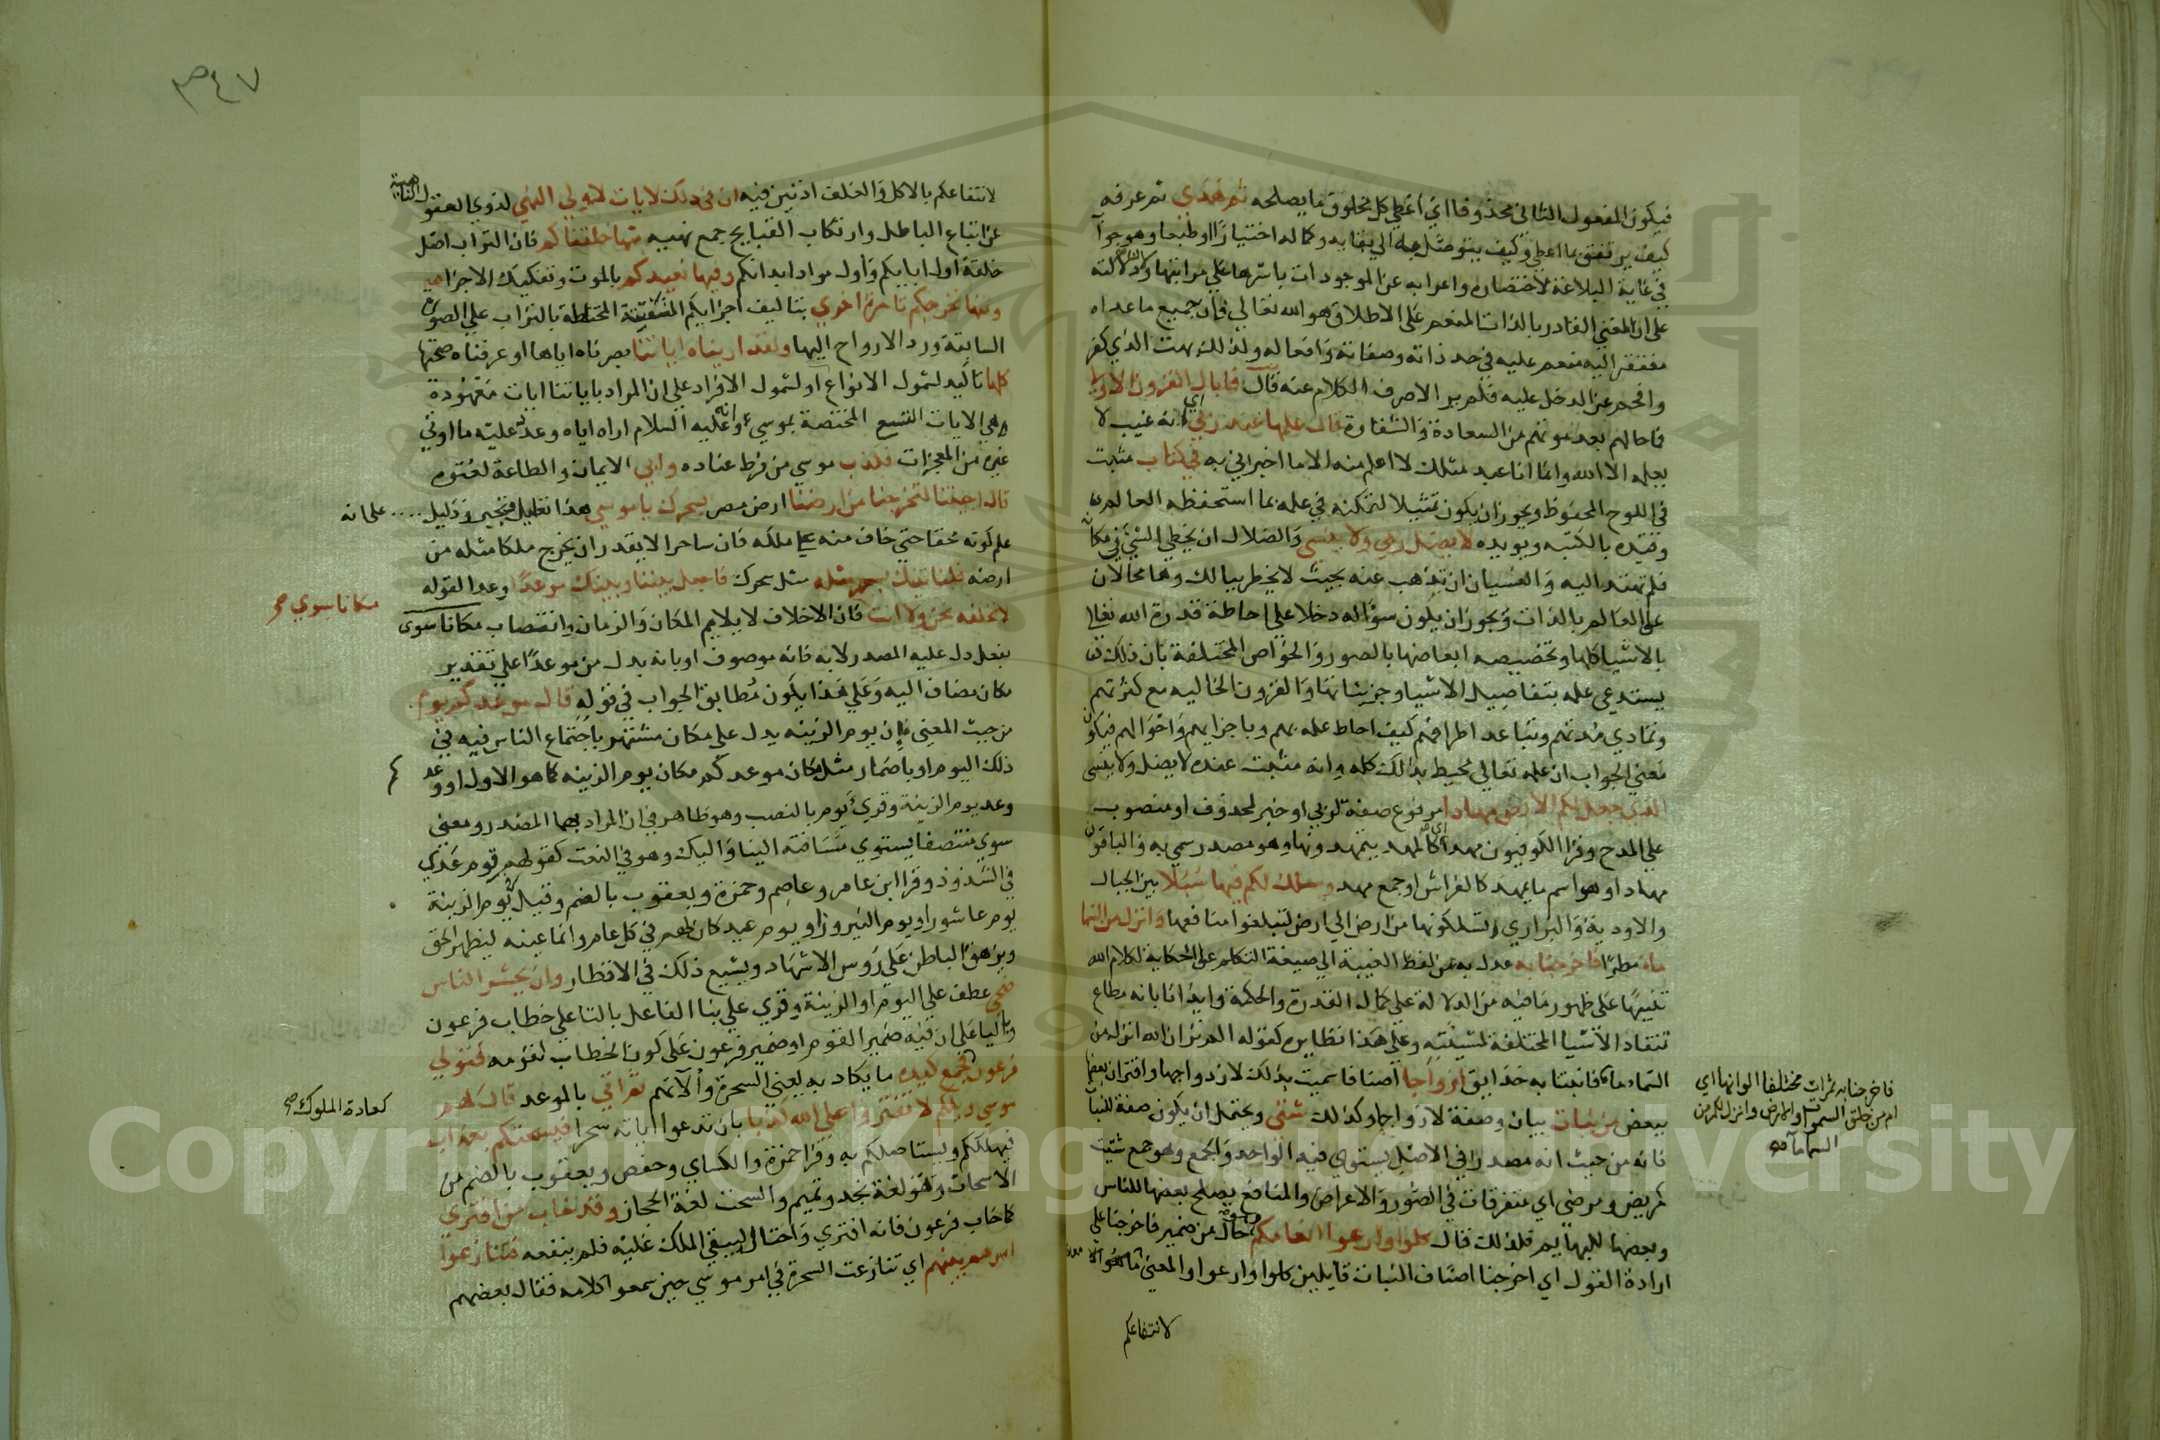 فيكون المفعول الثاني محذوفا اي اعطي كل مخلوق ما يصلحه ثم هدي ثم عرفه
كيف يرتفق بما اعطي وكيف يتوصل به الي بقايه وكماله اختيارا او طبعا وهو جواب
في غاية البلاغة لاختصاره واعرابه عن الموجودات باسرها علي مراتبها ودلالته
علي ان الغني القادر بالذات المنعم علي الاطلاق هو الله تعالي وان جميع ما عداه
مفتقر اليه منعم عليه في حد ذاته وصفاته وافعاله ولذلك بهت الذي كفر
وافحم عن الدخل عليه فلم ير الا صرف الكلام عنه قال فما بال القرون الاولي
فما حالهم بعد موتهم من السعادة والشقاوة قال علمها عند ربي اي انه غيب لا
يعلمه الا الله وانما انا عبد مثلك لا اعلم منه الا ما اخبرني به في كتاب مثبت
في اللوح المحفوظ ويجوز ان يكون تمثيلا لتمكنه في علمه بما استحفظه العالم
وقيده بالكتبه ويويده لا يضل ربي ولا ينسي والضلال ان تخطي الشي في مكانه
فلم تهتد اليه والنسيان ان تذهب عنه بحيث لا يخطر ببالك وهما محالان
علي العالم بالذات ويجوز ان يكون سؤاله دخلا علي احاطة قدرة الله تعالي
بالاشيا كلها وتخصيصه ابعاضها بالصور والخواص المختلفة بان ذلك
يستدعي علمه بتفاصيل الاشيا وجزيئاتها والقرون الخاليه مع كثرتهم
وتمادي مدتهم وتباعد اطرافهم كيف احاط علمه بهم وباجزايهم واحوالهم فيكون
معني الجواب ان علمه تعالي محيط بذلك كله وانه مثبت عنده لا يضل ولا ينسي
الذي جعل لكم الارض مهادا مرفوع صفة لربي او خبر لمحذوف او منصوب
علي المدح وقرا الكوفيون مهدا اي كالمهد يتمهدونها وهو مصدر سمي به والباقون
مهادا وهو اسم ما يمهد كالفراش او جمع مهد وسلك لكم فيها سبلا بين الجبال
والاودية والبراري لتسلكونها من ارض الي ارض لتبلغوا منافعها وانزل من السما
ماء مطرا فاخرجنا به عدل به من لفظ الغيبة الي صيغة التكلم علي الحكاية لكلام الله
تنبيها علي ظهور ما فيه من الدلالة علي كمال القدرة والحكمة وايذانا بانه مطاع
تنقاد الاشيا المختلفة لمشيئته وعلي هذا نظايره كقوله الم تر ان الله انزل من
السماء ماء فانبتنا به حدايق ازواجا اصنافا سميت بذلك لازدواجها واقتران بعضها
ببعض من نبات بيان وصفة لازواجا وكذلك شتي ويحتمل ان يكون صفة للنبات
فانه من حيث انه مصدر في الاصل يستوي فيه الواحد والجمع وهو جمع شتيت
كمريض ومرضي اي متفرقات في الصور والاعراض والمنافع يصلح بعضها للناس
وبعضها للبهايم فلذلك قال كلوا وارعوا انعامكم وهو حال من ضمير فاخرجنا علي
ارادة القول اي اخرجنا اصناف النبات قايلين كلوا وارعوا والمعني
لانتفاعكم
فاخرجنا به ثمرات مختلفا الوانها اي
ام من خلق السموات والارض وانزل لكم من
السما ماء
٣٤٧
لانتفاعكم بالاكل والعلف اذنين فيه ان في ذلك لايات لاولي النهي لذوي العقول الناهية
عن اتباع الباطل وارتكاب القبايح جمع نهيه منها خلقناكم فان التراب اصل
خلقة اول ابايكم واول مواد ابدانكم وفيها نعيدكم بالموت وتفكيك الاجزا
ومنها نخرجكم تارة اخري بتاليف اجزايكم المتفتتة المختلطة بالتراب علي الصورة
السابقة ورد الارواح اليها ولقد اريناه اياتنا بصرناه اياها او عرفناه صحتها
كلها تاكيد لشمول الانواع او لشمول الافراد علي ان المراد باياتنا ايات معهودة
وهي الايات التسع المختصة بموسي او انه عليه السلام اراه اياه وعدد عليه ما اوتي
غيره من المعجزات فكذب موسي من فرط عناده وابي الايمان والطاعة لعتوه
قال اجئتنا لتخرجنا من ارضنا ارض مصر بسحرك يا موسي هذا تعلل وتحير ودليل .... علي انه
علم كونه محقا حتي خاف منه علي ملكه فان ساحرا لا يقدر ان يخرج ملكا مثله من
ارضه فلناتينك بسحر مثله مثل سحرك فاجعل بيننا وبينك موعدا وعدا لقوله
لا نخلفه نحن ولا انت فان الاخلاف لا يلايم المكان والزمان وانتصاب مكانا سوي
مكانا سوي
بفعل دل عليه المصدر لا به فانه موصوف او بانه بدل من موعدا علي تقدير
مكان مضاف اليه وعلي هذا يكون طباق الجواب في قوله قال موعدكم يوم
من حيث المعني فان يوم الزينه يدل علي مكان مشتهر باجتماع الناس فيه في
ذلك اليوم او باضمار مثل مكان موعدكم مكان يوم الزينه كما هو الاول او وعد
وعد يوم الزينة وقري يوم بالنصب وهو ظاهر في ان المراد بهما المصدر ومعني
سوي منتصفا يستوي مسافته الينا واليك وهو في النعت كقولهم قوم عدي
في الشذوذ وقرا ابن عامر وعاصم وحمزة ويعقوب بالضم وقيل يوم الزينة
يوم عاشورا او يوم النيروز او يوم عيد كان لهم في كل عام وانما عينه ليظهر الحق
ويزهق الباطل علي رؤس الاشهاد ويشيع ذلك في الاقطار وان يحشر الناس
ضحي عطف علي اليوم او الزينة وقري علي بنا الفاعل بالتا علي خطاب فرعون
وباليا علي ان فيه ضمير القوم او ضمير فرعون علي كون الخطاب لقومه فتولي
فرعون فجمع كيده ما يكاد به يعني السحرة والاتهم ثم اتي بالموعد قال لهم
كعادة الملوك صح
موسي ويلكم لا تفتروا علي الله كذبا بان تدعوا اياته سحرا فيسحتكم بعذاب
فيهلككم ويستاصلكم به وقرا حمزة والكساي وحفص ويعقوب بالضم من
الاسحات وهو لغة نجد وتميم والسحت لغة الحجاز وقد خاب من افتري
كما خاب فرعون فانه افتري واحتال ليبقي الملك عليه فلم ينفعه فتنازعوا
امرهم بينهم اي تنازعت السحرة في امر موسي حين سمعوا كلامه فقال بعضهم
Copyright © King Saud University